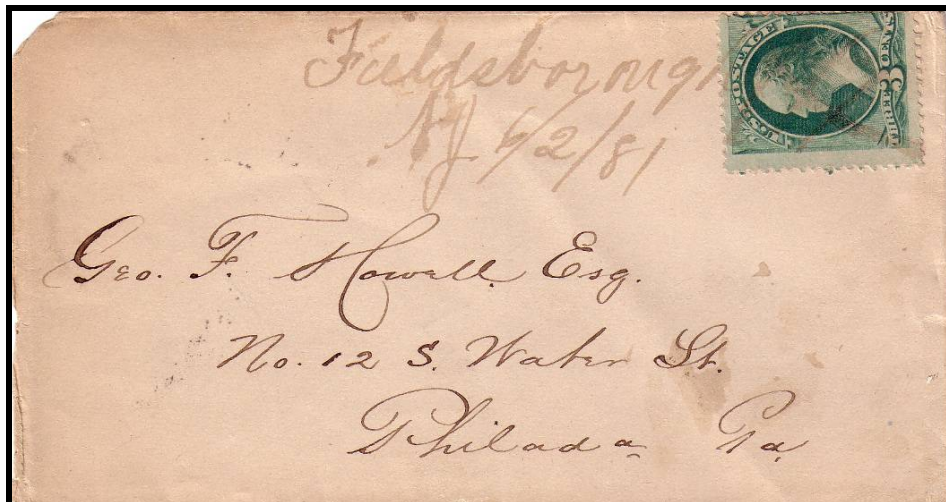 Fieldsborough
NJ 6/2/81
U.S. POSTAGE
Geo. F. Howell, Esq.
No. 12 S. Water St.
Philada Pa.